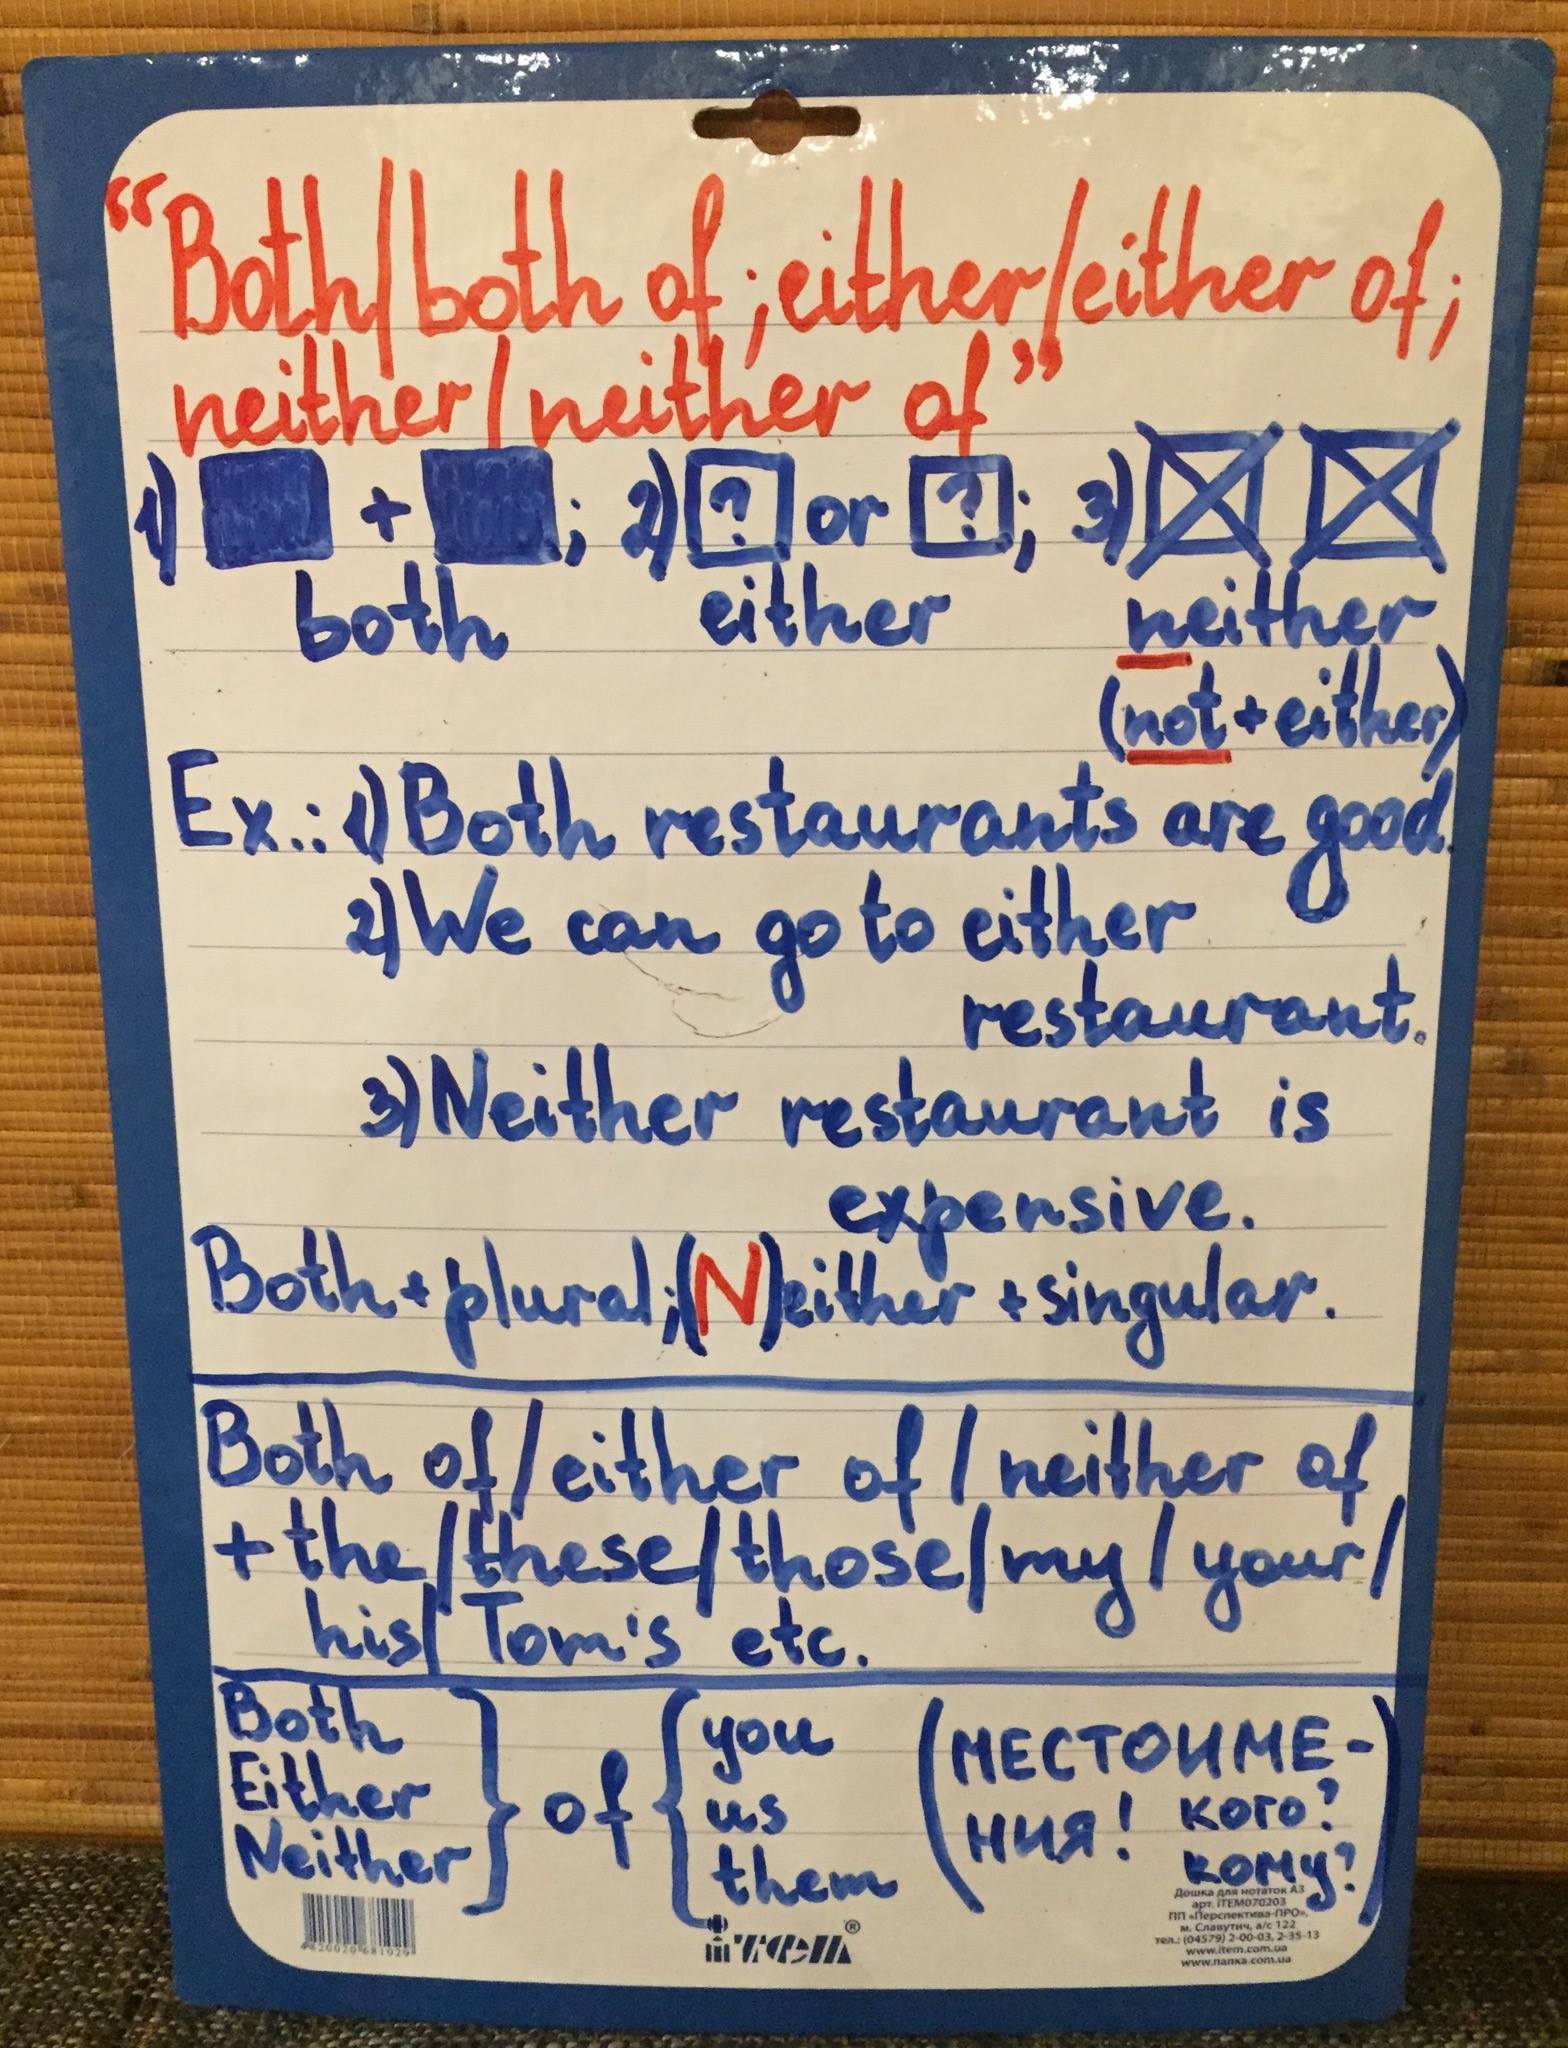 “Both/both of; either/either of;
neither/neither of”
1) + ; 2) ? or ? ; 3)
both either neither
(not + either)
Ex.: 1) Both restaurants are good.
2) We can go to either
restaurant.
3) Neither restaurant is
expensive.
Both + plural; (N)either + singular.
Both of/either of/neither of
+ the/these/those/my/your/
his/Tom's etc.
Both
Either
Neither
of
you
us
them
(МЕСТОИМЕ-
НИЯ! кого?
кому?)
Дошка для нотаток А3
арт. iTEM070203
ПП «Перспектива-ПРО»,
м. Славутич, а/с 122
тел.: (04579) 2-00-03, 2-35-13
www.item.com.ua
www.папка.com.ua
iTEM ®